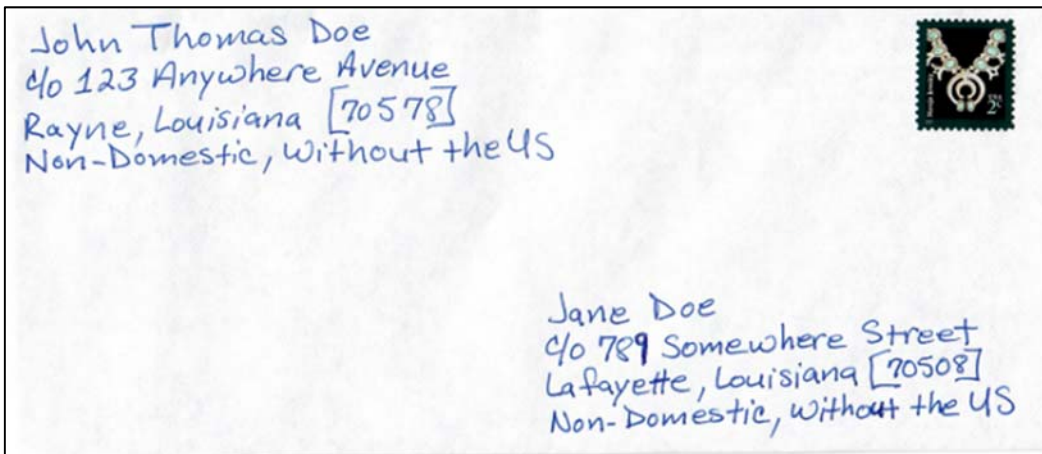 John Thomas Doe
c/o 123 Anywhere Avenue
Rayne, Louisiana [70578]
Non-Domestic, Without the US
2¢
Jane Doe
c/o 789 Somewhere Street
Lafayette, Louisiana [70508]
Non-Domestic, Without the US